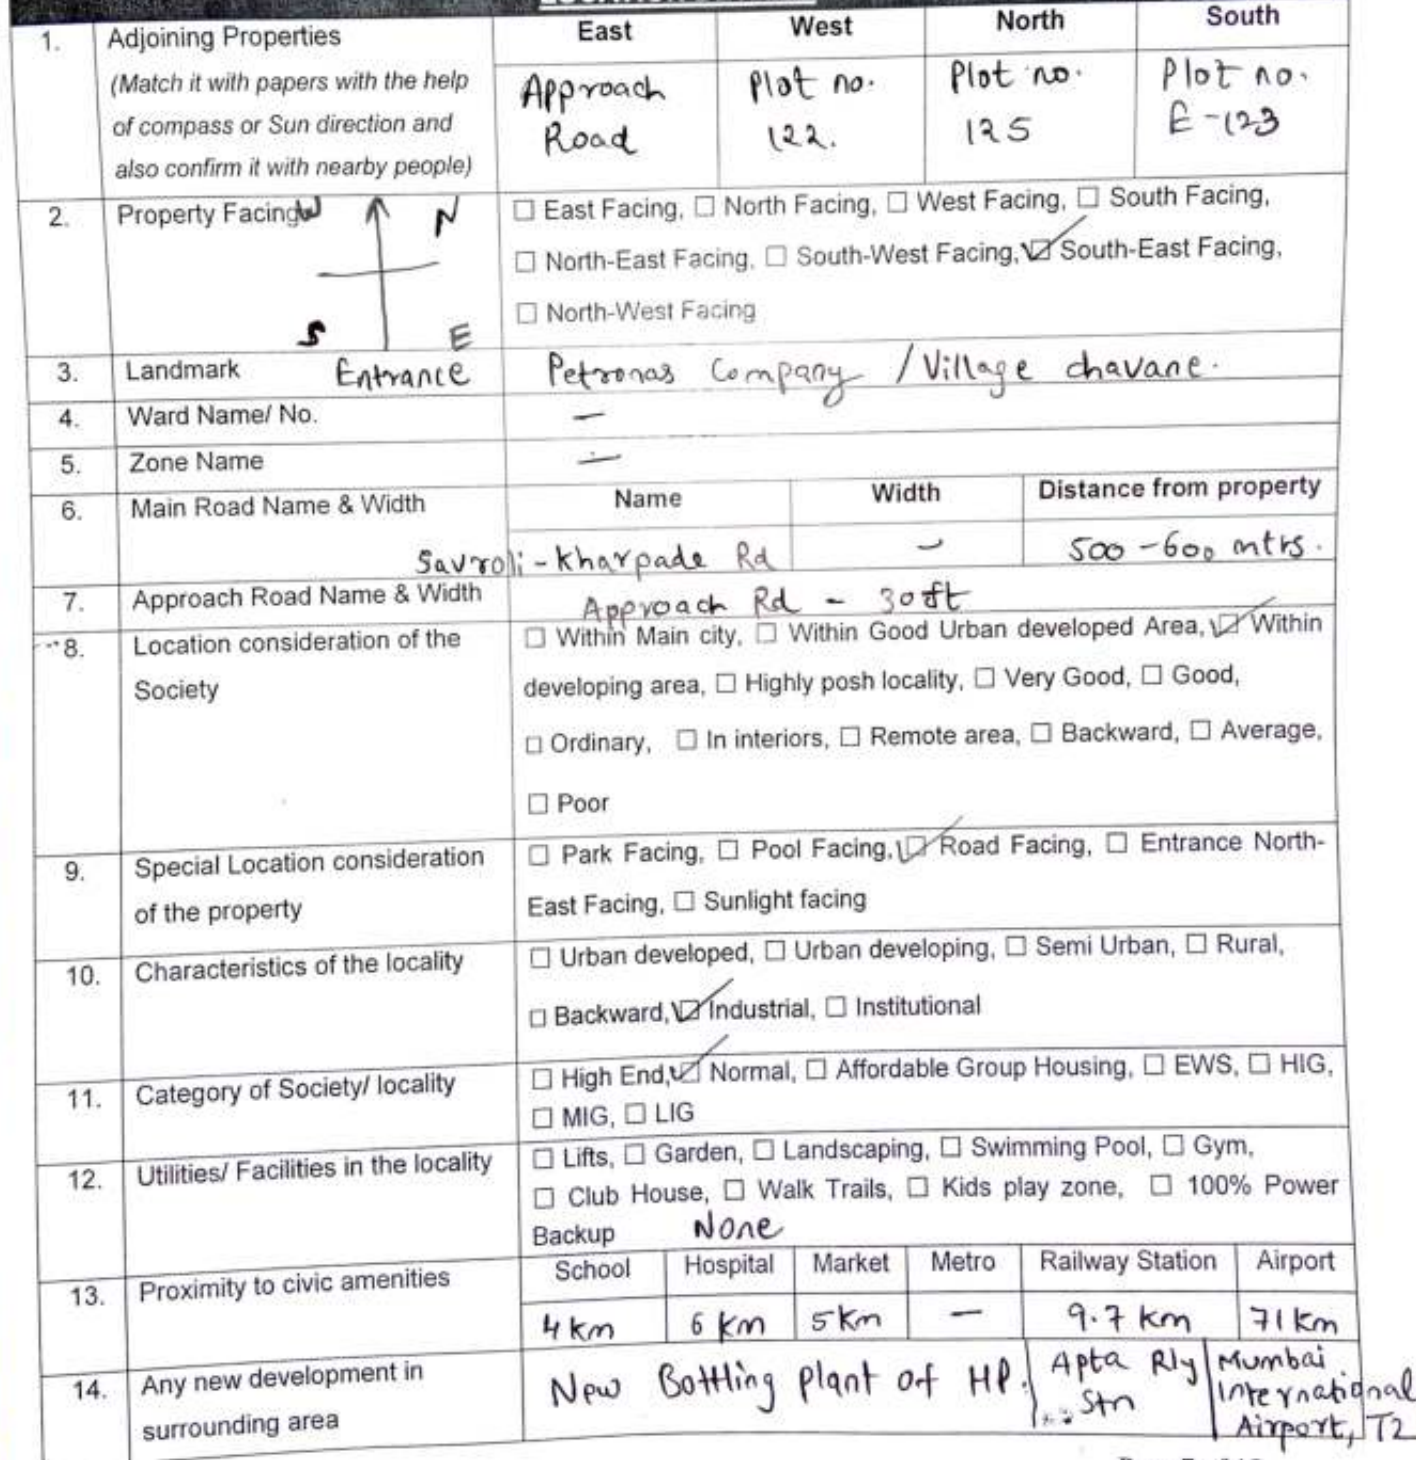 1. Adjoining Properties East West North South
(Match it with papers with the help
of compass or Sun direction and
also confirm it with nearby people)
Approach
Road
Plot no.
122.
Plot no.
125
Plot no.
E-123
2. Property Facing W N
S E
Entrance
☐ East Facing, ☐ North Facing, ☐ West Facing, ☐ South Facing,
☐ North-East Facing, ☐ South-West Facing, ☑ South-East Facing,
☐ North-West Facing
3. Landmark Petronas Company / Village chavane.
4. Ward Name/ No. –
5. Zone Name –
6. Main Road Name & Width Name Width Distance from property
Savroli-kharpade Rd – 500-600 mtrs.
7. Approach Road Name & Width Approach Rd - 30ft
8. Location consideration of the
Society
☐ Within Main city, ☐ Within Good Urban developed Area, ☑ Within
developing area, ☐ Highly posh locality, ☐ Very Good, ☐ Good,
☐ Ordinary, ☐ In interiors, ☐ Remote area, ☐ Backward, ☐ Average,
☐ Poor
9. Special Location consideration
of the property
☐ Park Facing, ☐ Pool Facing, ☑ Road Facing, ☐ Entrance North-
East Facing, ☐ Sunlight facing
10. Characteristics of the locality
☐ Urban developed, ☐ Urban developing, ☐ Semi Urban, ☐ Rural,
☐ Backward, ☑ Industrial, ☐ Institutional
11. Category of Society/ locality
☐ High End, ☑ Normal, ☐ Affordable Group Housing, ☐ EWS, ☐ HIG,
☐ MIG, ☐ LIG
12. Utilities/ Facilities in the locality
☐ Lifts, ☐ Garden, ☐ Landscaping, ☐ Swimming Pool, ☐ Gym,
☐ Club House, ☐ Walk Trails, ☐ Kids play zone, ☐ 100% Power
Backup None
13. Proximity to civic amenities School Hospital Market Metro Railway Station Airport
4 km 6 km 5 km – 9.7 km 71 km
14. Any new development in
surrounding area
New Bottling plant of HP.
Apta Rly
Stn
Mumbai
International
Airport, T2